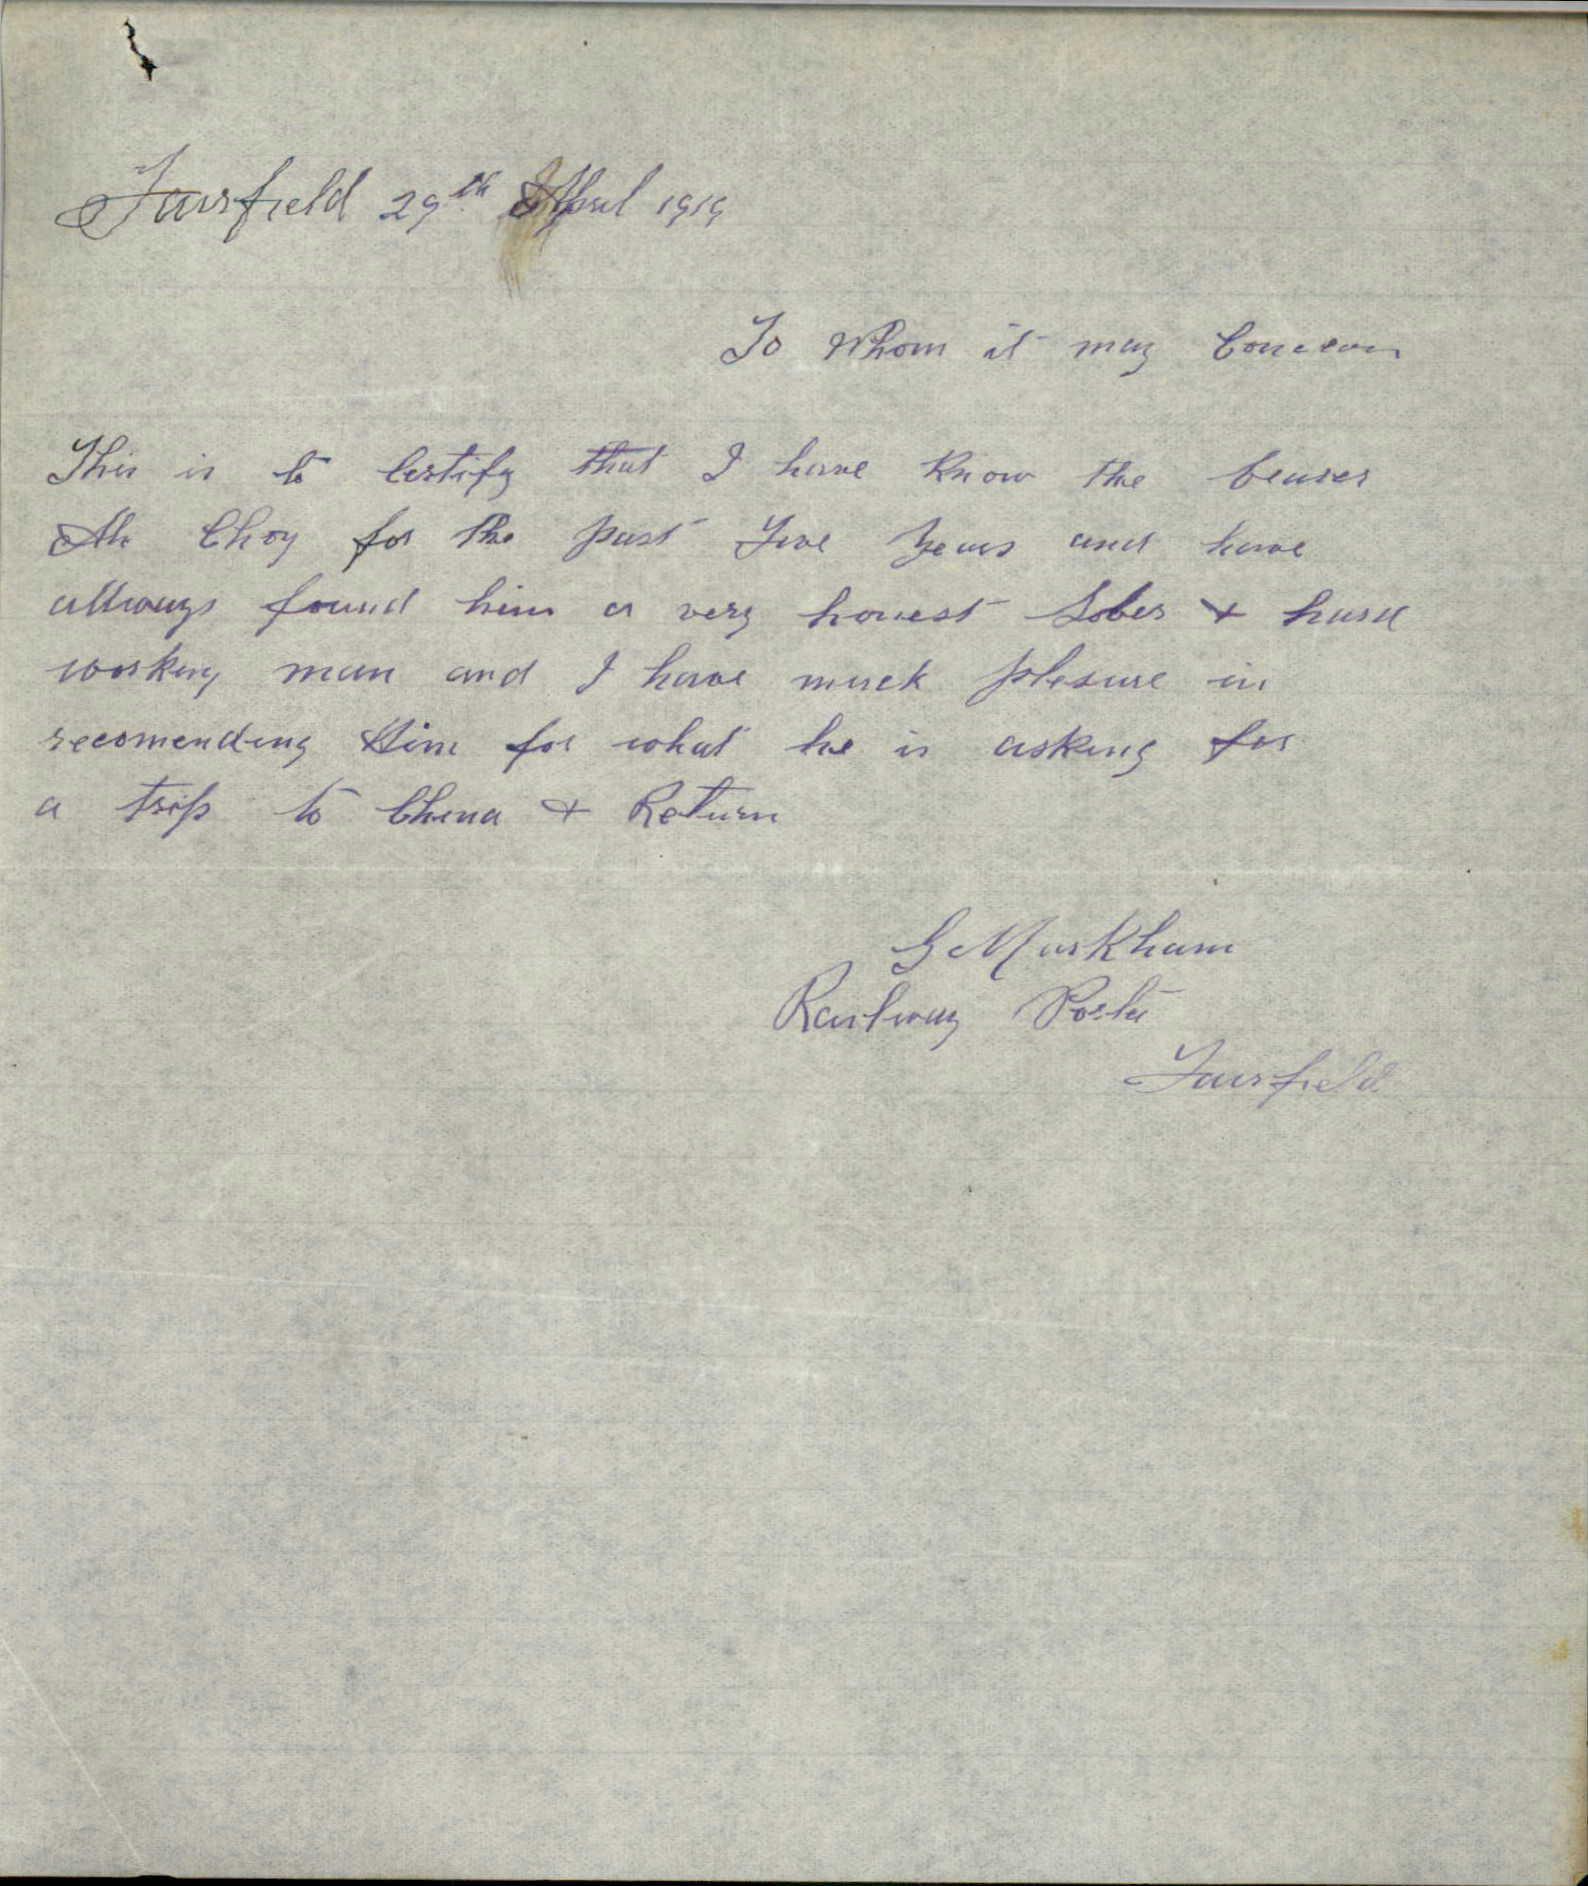 Fairfield 29th April 1919
To Whom it may Concern
This is to Certify that I have Know the bearer
Ah Choy for the past five years and have
allways found him a very honest Sober & hard
working man and I have much plesure in
recomending Him for what he is asking for
a trip to China & Return
G Markham
Railway Porter
Fairfield